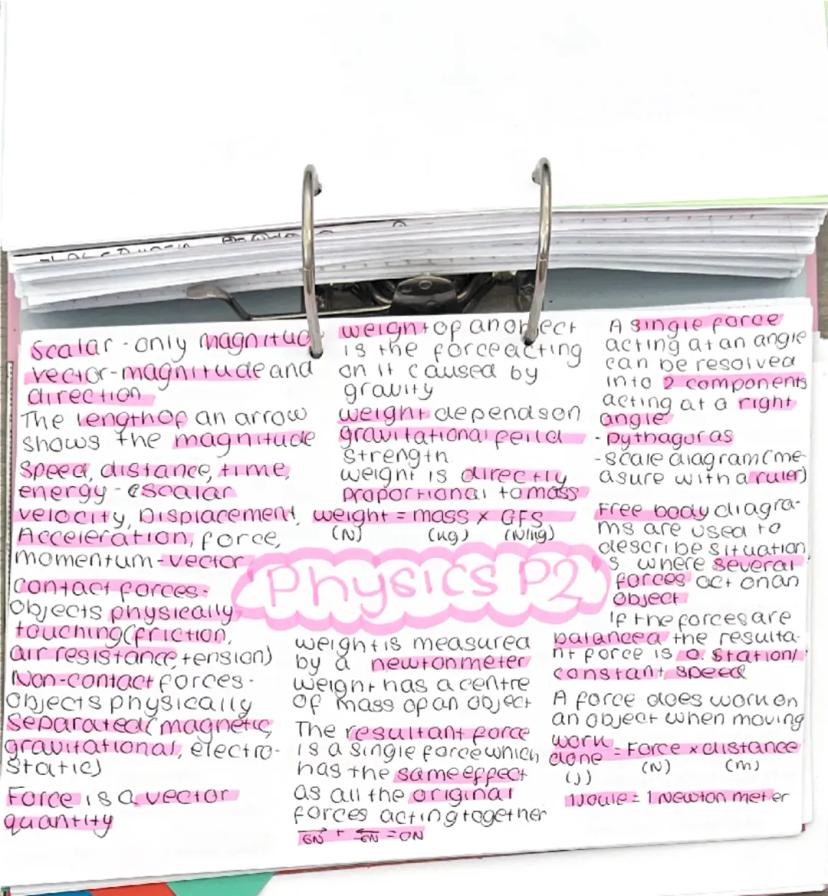 Scalar - only magnitud
vector - magnitude and
direction
The length of an arrow
shows the magnitude
Speed, distance, time,
energy - scalar
velocity, Displacement,
Acceleration, force,
momentum - vector
contact forces-
objects physically
touching (friction,
air resistance, tension)
Non-contact forces-
objects physically
separated (magnetic,
gravitational, electro-
static)
Force is a vector
quantity
weight of an object
is the force acting
on it caused by
gravity
weight depends on
gravitational feild
strength
weight is directly
proportional to mass
weight = mass x GFS
(N) (kg) (N/kg)
Physics P2
weight is measured
by a newtonmeter
weight has a centre
of mass of an object
The resultant force
is a single force which
has the same effect
as all the original
forces acting together
6N + 6N = 0N
A single force
acting at an angle
can be resolved
into 2 components
acting at a right
angle
- Pythagoras
- scale diagram (me-
asure with a ruler)
Free body diagra-
ms are used to
describe situation
s where several
forces act on an
object
If the forces are
balanced the resulta-
nt force is 0. Station/
constant speed
A force does work on
an object when moving
work
done = Force x distance
(J) (N) (m)
1 Joule = 1 Newton meter